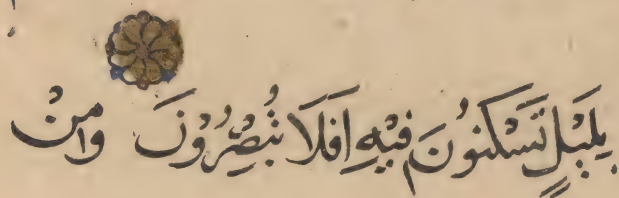 بِلَيْلٍ تَسْكُنُونَ فِيْهِ اَفَلَا تُبْصِرُوْنَ وَمِنْ